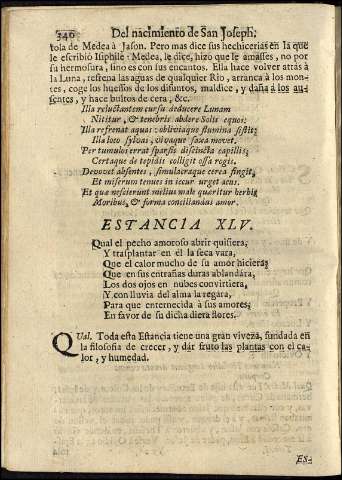 346 Del nacimiento de San Joseph,
tola de Medea à Jason. Pero mas dice sus hechicerias en la que
le escribiò Isiphile: Medea, le dice, hizo que le amasses, no por
su hermosura, sino es por sus encantos. Ella hace volver atràs à
la Luna, refrena las aguas de qualquier Rio, arranca à los mon-
tes, coge los huessos de los difuntos, maldice, y daña à los au-
sentes, y hace bultos de cera, &c.
Illa reluctantem cursu deducere Lunam
Nititur, & tenebris abdere Solis equos:
Illa refrenat aquas, obliviaque flumina sistit;
Illa loco sylvas, vivaque saxa movet.
Per tumulos errat sparsis discincta capillis;
Certaque de tepidis colligit ossa rogis.
Devovet absentes, simulacraque cerea fingit,
Et miserum tenues in iecur urget acus.
Et quæ nescierim melius male quæritur herbis
Moribus, & forma conciliandus amor.
ESTANCIA XLV.
Qual el pecho amoroso abrir quisiera,
Y trasplantar en èl la seca vara,
Que el calor mucho de su amor hiciera;
Que en sus entrañas duras ablandàra,
Los dos ojos en nubes convirtiera,
Y con lluvia del alma la regàra,
Para que enternecida à sus amores,
En favor de su dicha diera flores.
Qual. Toda esta Estancia tiene una gran viveza, fundada en
la filosofia de crecer, y dàr fruto las plantas con el ca-
lor, y humedad.
ES-